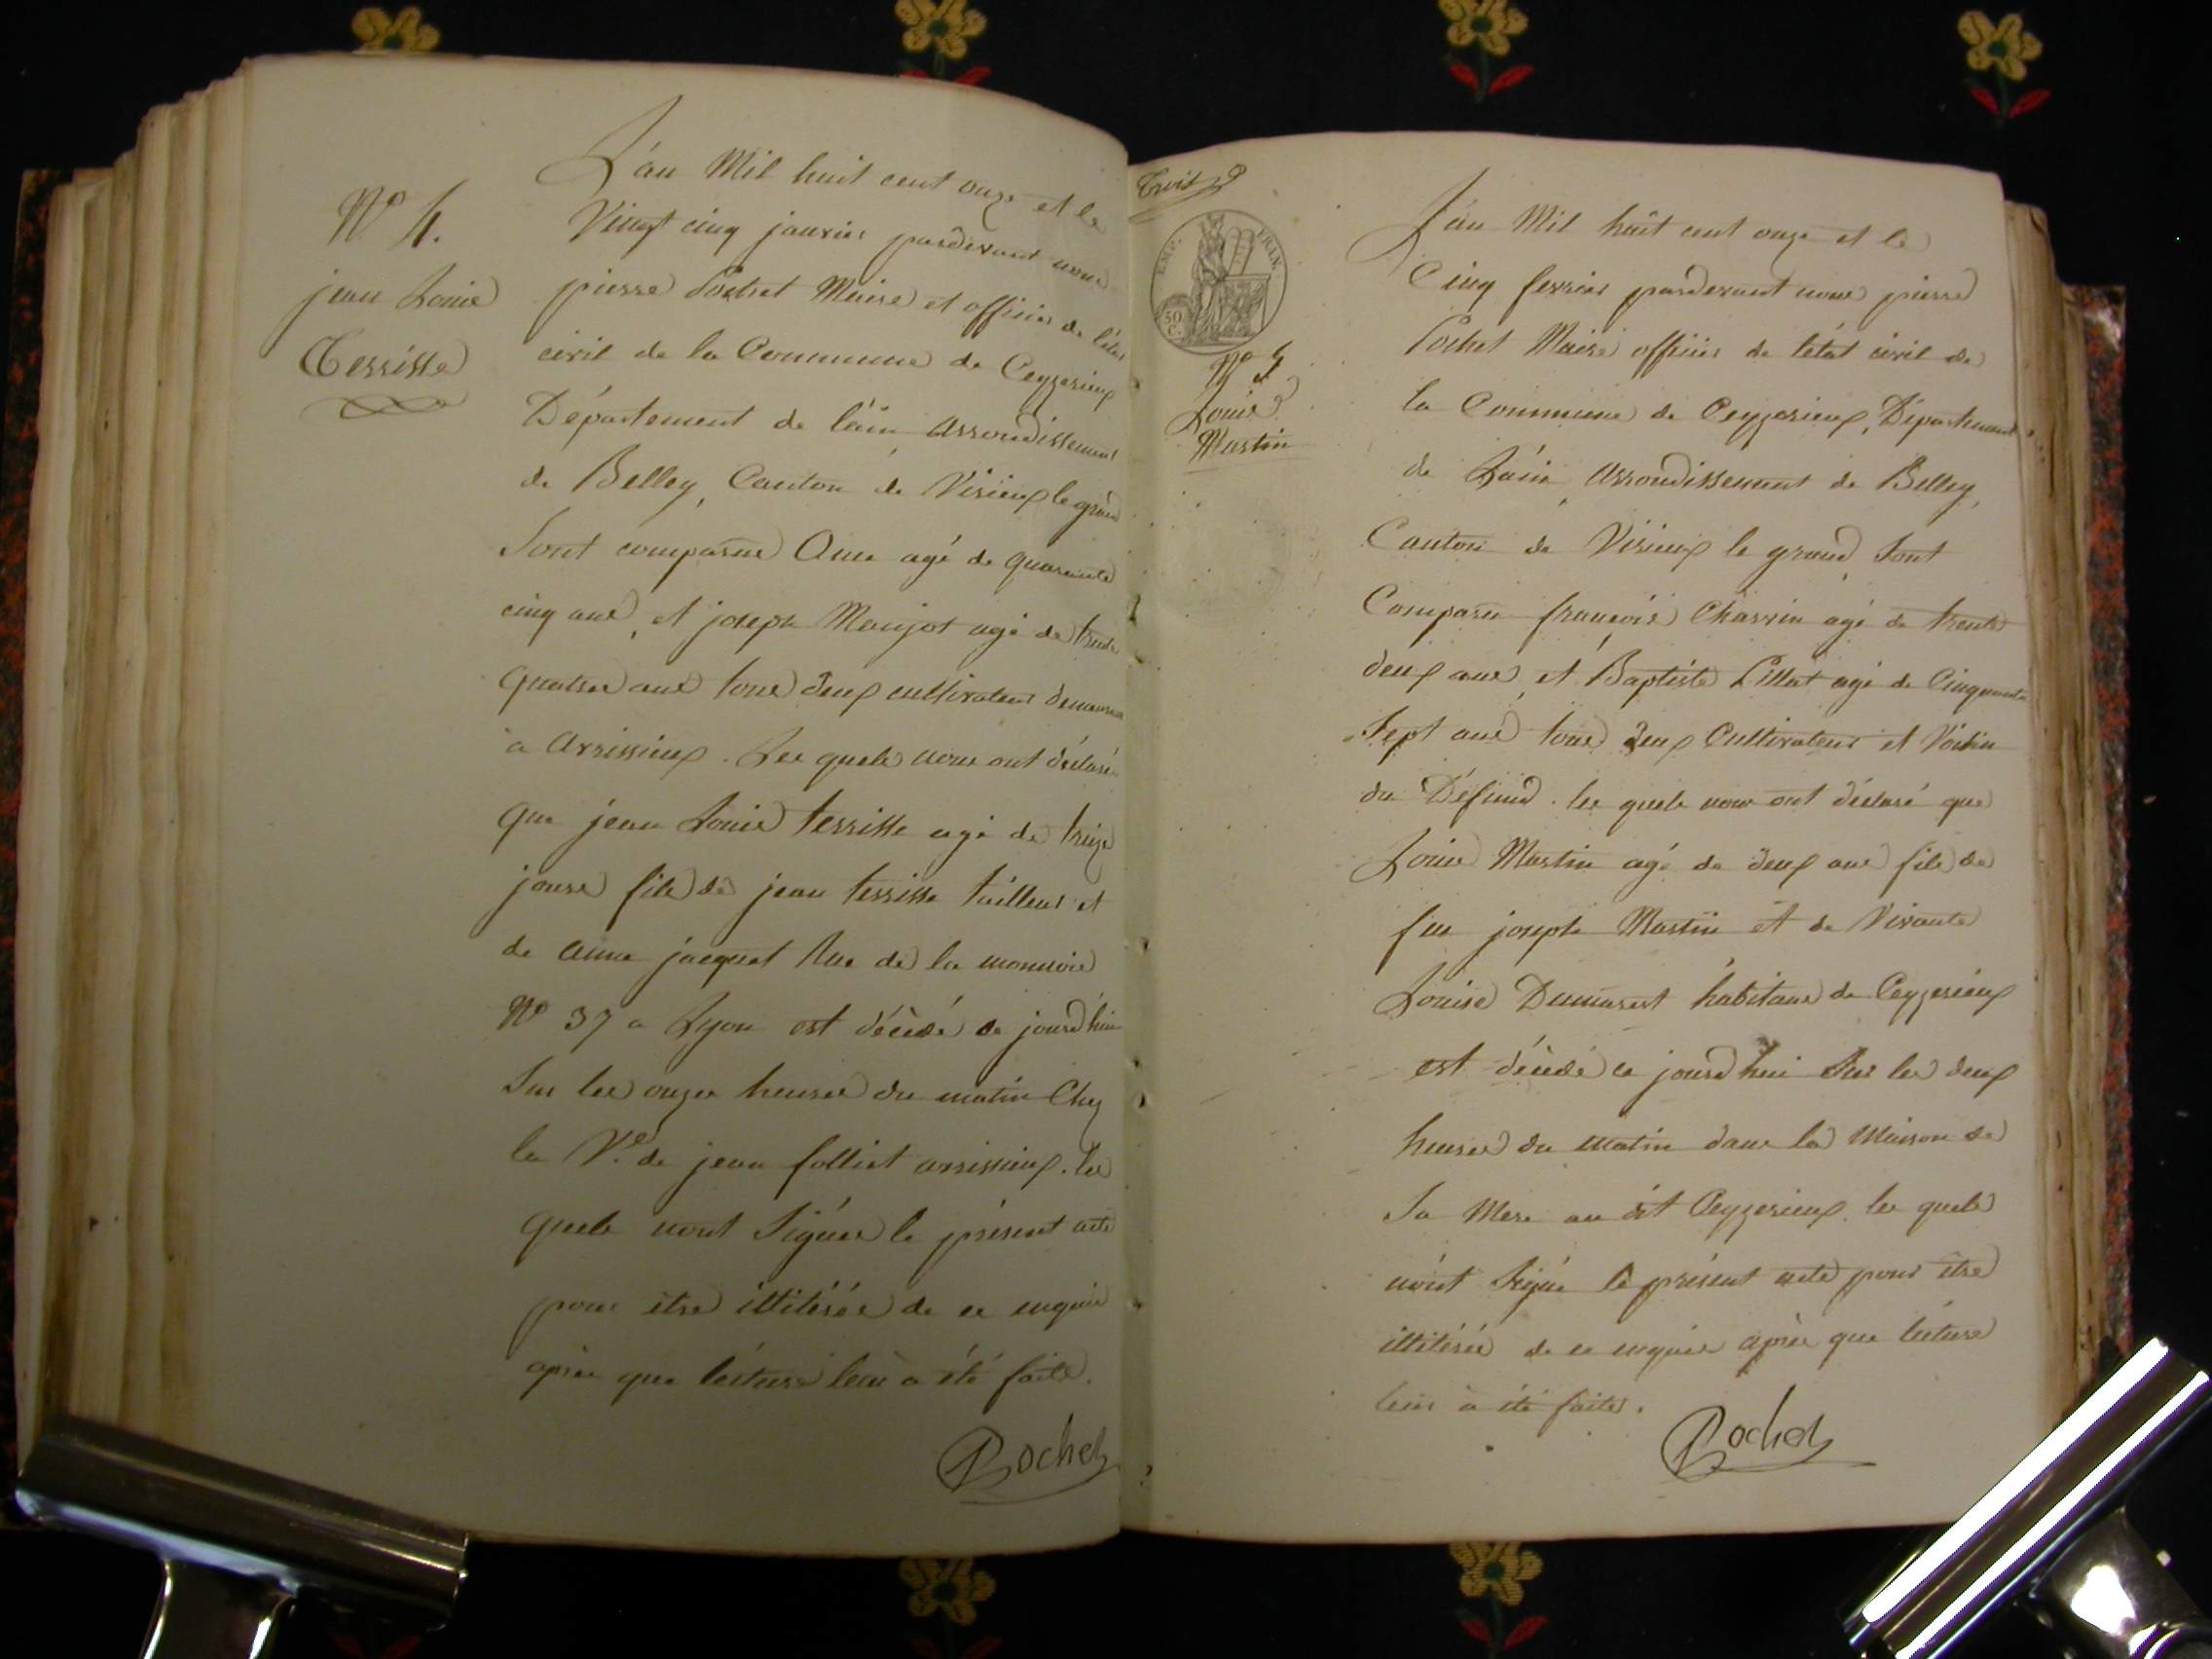 N° 4.
jean Louis
Terrisse
L'an Mil huit cent onze et le
Vingt cinq janvier pardevant nous
pierre Pochet Maire et officier de l'état
civil de la Commune de Ceyzerieux
Département de l'ain, arrondissement
de Belley, Canton de Virieux le grand
Sont comparus agé de quarante
cinq ans, et joseph Maujot agé de trente
quatre ans tous deux cultivateurs demeurant
à arvissieux. Les quels nous ont déclaré
que jean Louis terrisse agé de treize
jours fils de jean terrisse tailleur et
de anne jacquet Rue de la monnoie
N° 37 a Lyon est décédé ce jourd'hui
Sur les onzes heures du matin Chez
la Ve. de jean folliet arvissieux. les
quels n'ont Signés le présent acte
pour être illitérés de ce enquis
après que lécture leur a été faite.
Pochet
Trois
EMP. FRAN.
50 C.
N° 5
Louis
Martin
L'an Mil huit cent onze et le
Cinq fevrier pardevant nous pierre
Pochet Maire officier de l'état civil de
la Commune de Ceyzerieux, Département
de L'ain, arrondissement de Belley,
Canton de Virieux le grand, Sont
Comparu françois Charvin agé de trente
deux ans, et Baptiste Pillat agé de Cinquante
Sept ans tous deux Cultivateurs et Voisin
du Défund. les quels nous ont déclaré que
Louis Martin agé de deux ans fils de
feu joseph Martin et de Vivante
Louise Dumarest habitans de Ceyzerieux
est décédé ce jourd'hui Sur les deux
heures du matin dans la Maison de
Sa Mere au dit Ceyzerieux. les quels
n'ont Signé le présent acte pour être
illitérés de ce enquis après que lécture
leur à été faite.
Pochet